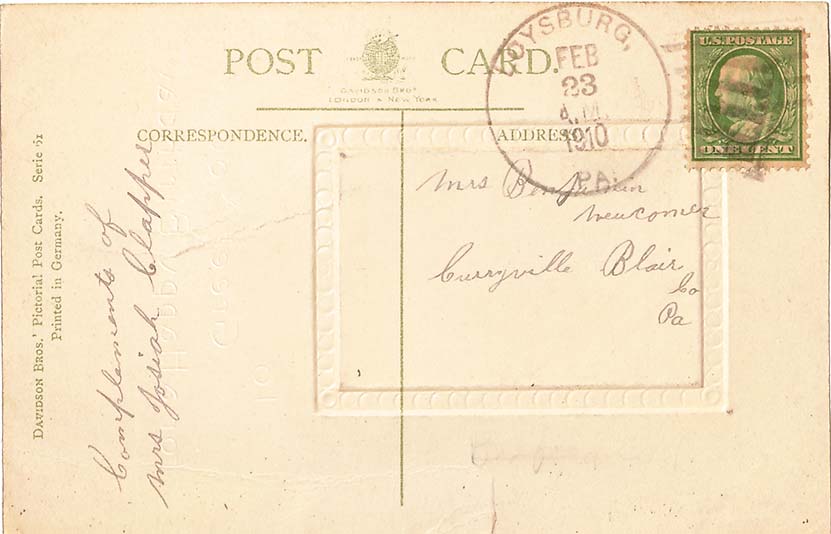 POST CARD.
DAVIDSON BROS.
LONDON & NEW YORK
CORRESPONDENCE.
ADDRESS
OYSBURG,
FEB
23
A.M.
1910
PA.
U.S. POSTAGE
ONE CENT
DAVIDSON BROS.' Pictorial Post Cards. Serie 61
Printed in Germany.
Complements of
Mrs Josiah Clapper
Mrs Benjamin
Newcomer
Curryville Blair
Co
Pa